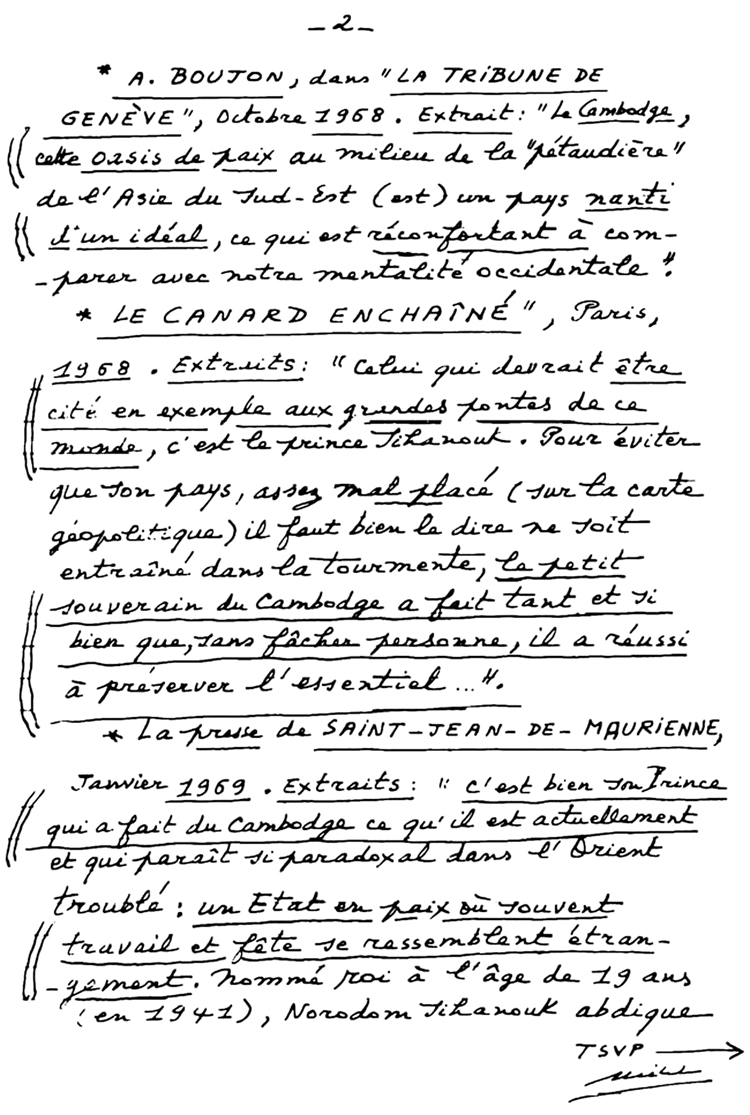 - 2 -
* A. BOUJON, dans "LA TRIBUNE DE
GENÈVE", Octobre 1968. Extrait : "Le Cambodge,
cette oasis de paix au milieu de la "pétaudière"
de l'Asie du Sud-Est (est) un pays nanti
d'un idéal, ce qui est réconfortant à com-
-parer avec notre mentalité occidentale".
* LE CANARD ENCHAÎNÉ", Paris,
1968. Extraits : "Celui qui devrait être
cité en exemple aux grandes pontes de ce
monde, c'est le prince Sihanouk. Pour éviter
que son pays, assez mal placé (sur la carte
géopolitique) il faut bien le dire ne soit
entraîné dans la tourmente, le petit
souverain du Cambodge a fait tant et si
bien que, sans fâcher personne, il a réussi
à préserver l'essentiel ...".
* La presse de SAINT-JEAN-DE-MAURIENNE,
Janvier 1969. Extraits : "c'est bien son Prince
qui a fait du Cambodge ce qu'il est actuellement
et qui paraît si paradoxal dans l'Orient
troublé : un Etat en paix où souvent
travail et fête se ressemblent étran-
-gement. Nommé roi à l'âge de 19 ans
(en 1941), Norodom Sihanouk abdique
TSVP →